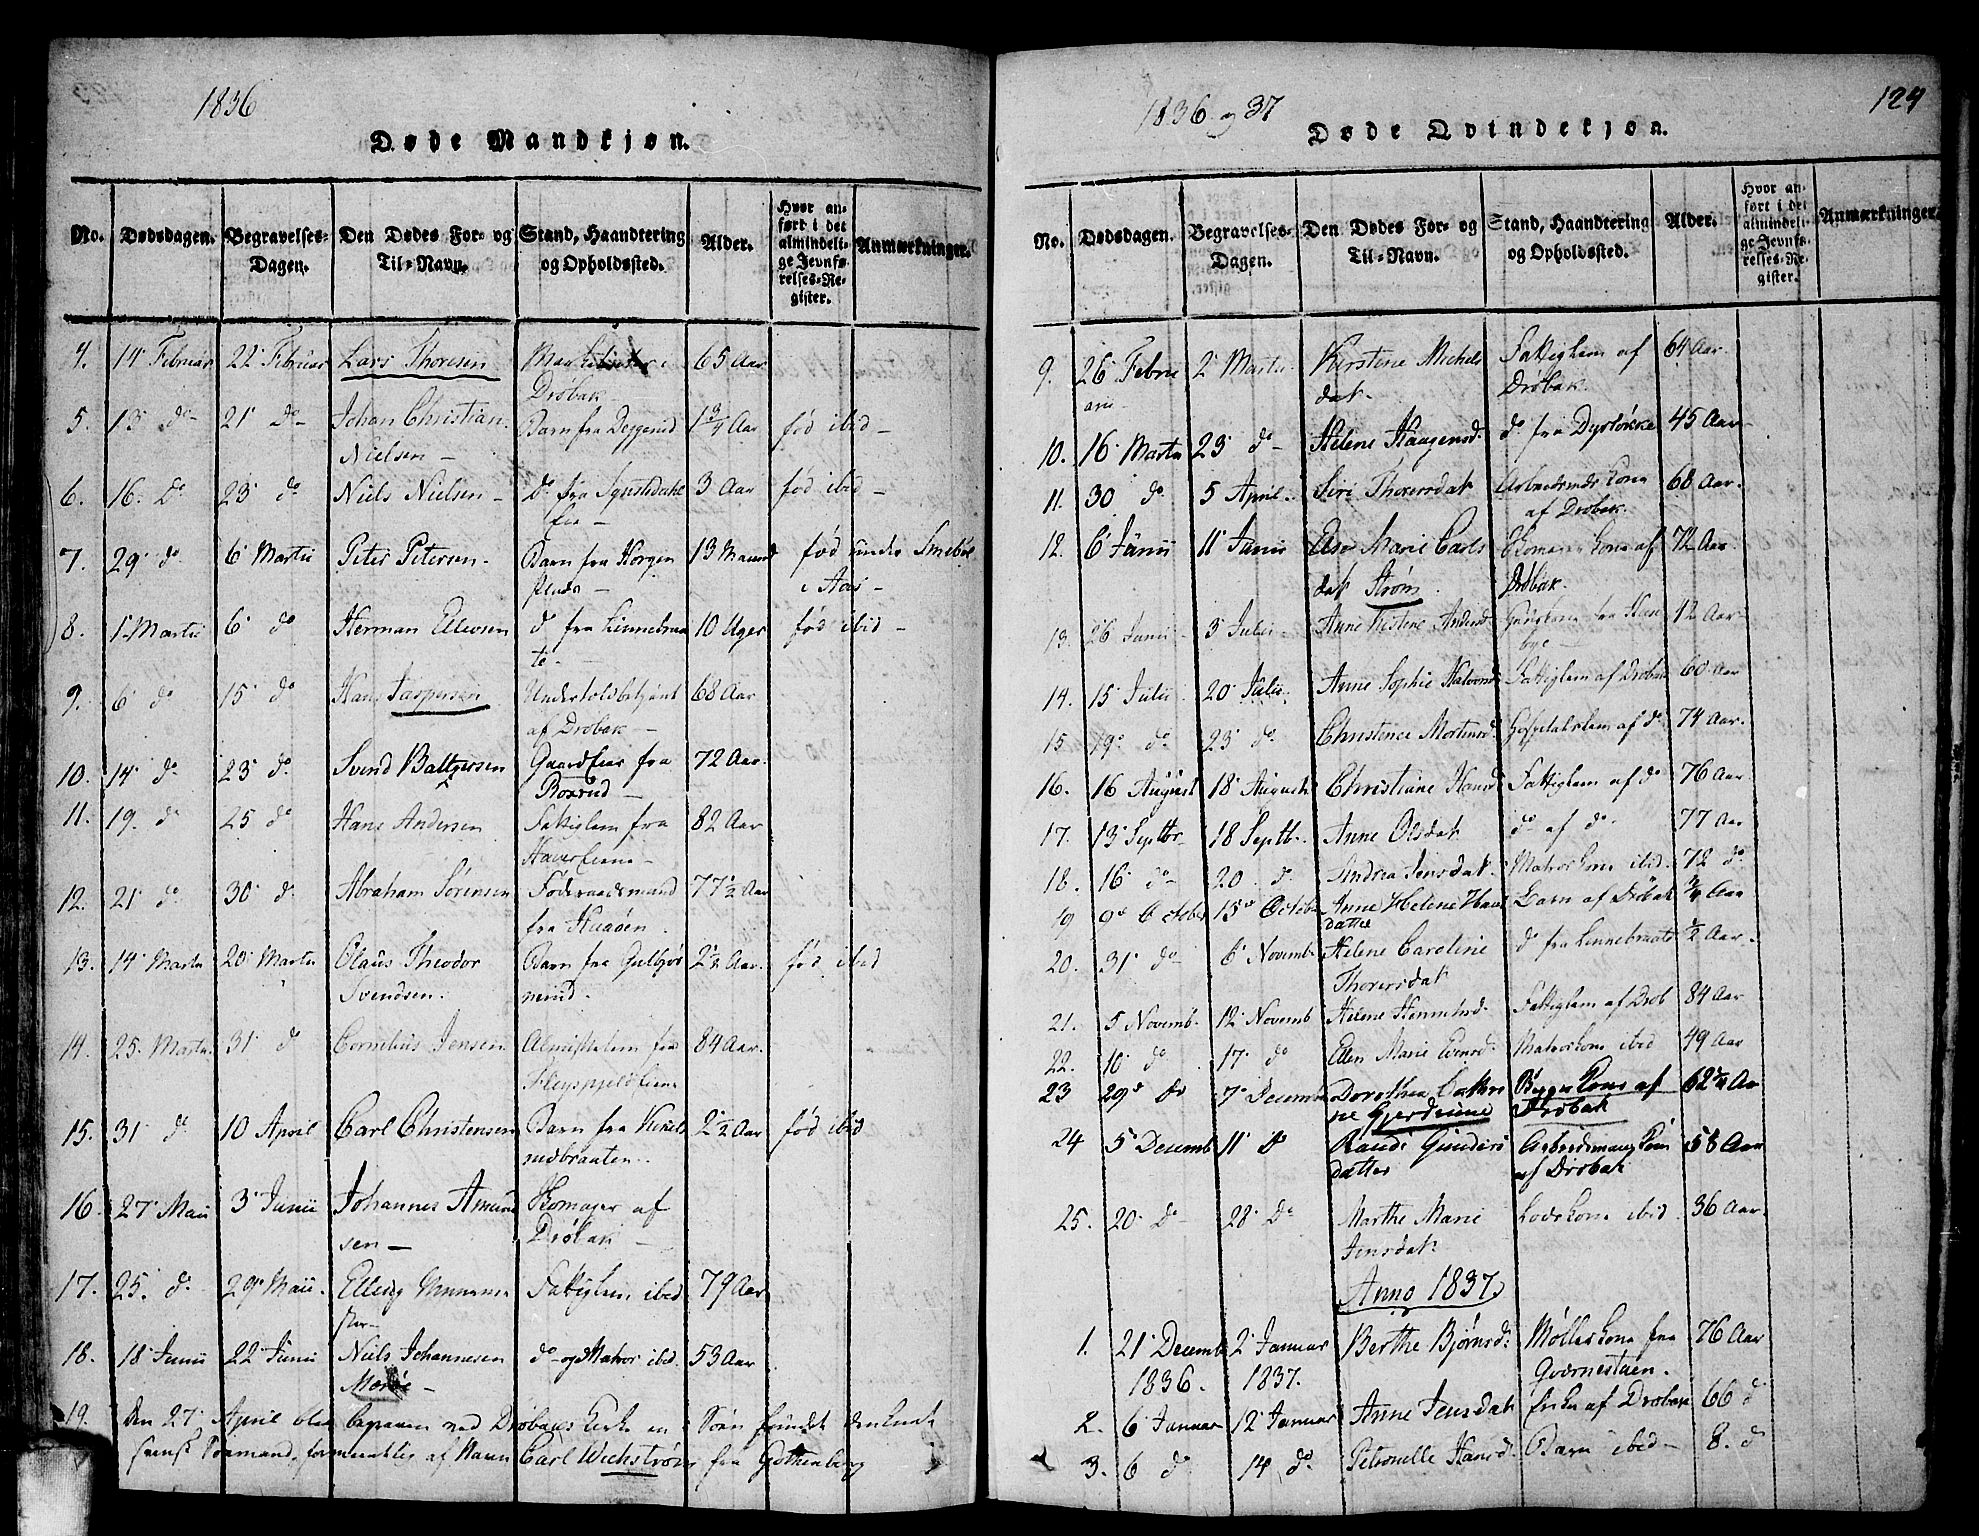 1836
Døde Mandkjøn.
No. Dødsdagen. Begravelses-Dagen. Den Dødes For- og Til-Navn. Stand, Haandtering og Opholdssted. Alder. Hvor anført i det almindelige Jevnførelses-Register. Anmærkninger.
4. 14 Februar 22 Februar Lars Thoresen
Drøbak 65 Aar
5. 13 do 21 do Johan Christian Barn fra 1 3/4 Aar fød ibid
Nielsen
6. 16. do 23 do Niels Nielsen do fra 3 Aar fød ibid
7. 29 do 6 Martii Peter Petersen Barn fra Horgen 13 Maaned fød under Smebøl
i Aas
8. 1 Martii 6 do Herman Ellevsen do fra Linnebraa 10 Uger fød ibid
te
9. 6 do 15 do Hans Jaspersen Undertolsbetjent 68 Aar
af Drøbak
10. 14 do 23 do Svend Baltzersen Gaard Eier fra 72 Aar
11. 19. do 25 do Hans Andersen Fattiglem fra 82 Aar
12. 21 do 30 do Abraham Sørensen Føderaadsmand 77 1/2 Aar
fra
13. 14 Martii 20 Martii Olaus Theodor Barn fra 2 1/2 Aar fød ibid
Svendsen.
14. 25. Martii 31 do Cornelius Jensen fra 84 Aar.
15. 31 do 10 April Carl Christensen Barn fra 2 1/2 Aar fød ibid
16. 27 Maii 3 Junii Johannes Amund Skomager af
sen Drøbak
17. 25. do 29 Maii. Fattiglem ibid 79 Aar
18. 18 Junii 22 Junii Niels Johannesen do og Matros ibid. 53 Aar
19. Den 27 April blev begraven ved Drøbaks Kirke en i Søen fundet
svensk Sømand, af Navn Carl Wichstrøm fra Gothenberg
1836 og 37
124
Døde Qvindekjøn.
No. Dødsdagen. Begravelses-Dagen. Den Dødes For- og Til-Navn. Stand, Haandtering og Opholdssted. Alder. Hvor anført i det almindelige Jevnførelses-Register. Anmærkninger.
9. 26 Febru 2 Martii Kirstine Michels Fattiglem af 64 Aar
arii dat. Drøbak
10. 16 Martii 23 do Helene Haagensd. do fra Dyrløkke 45 Aar
11. 30 do 5 April Siri Thorersdat Arbeidsmds kone 68 Aar.
af Drøbak.
12. 6 Junii 11 Junii Marie Carls Skomager kone af 72 Aar.
dat Strøm Drøbak.
13. 26 Junii 3 Julii Anne Kistine Andersd 42 Aar
14. 15 Julii 20 Julii Anne Sophie Halvorsd Fattiglem af Drøbak 60 Aar
15 19 do 23 do Christence Mortensd. Hospitalslem af do 74 Aar.
16. 16 August 18 August Christiane Hansd Fattiglem af do 76 Aar
17. 13 Septbr 18 Septb. Anne Olsdat do af do 77 Aar
18. 16 do 20. do Andrea Jensdat. Matroskone ibid. 72 do
19 9 October 15 Octobr Anne Helene Hans Barn af Drøbak 3/4 Aar
datter
20. 31 do 6 Novemb Helene Caroline do fra Linnebraate 1/2 Aar
Thorersdat
21. 5 Novemb. 12 Novemb Helene Fattiglem af Drøb 84 Aar
22. 10 do 17 do Ellen Marie Evensd. Matroskone ibid 49 Aar
23 29 do 7 Decemb Dorothea Cathri Kone af 62 Aar
ne Gjerdrume Drøbak
24 5 Decemb 11 do Randi Gunders Arbeidsmans Kone 58 Aar
datter af Drøbak
25. 20 do 28 do Marthe Marie Loskone ibid 36 Aar.
Jensdat.
Anno 1837
1. 21 Decemb 2 Januar Berthe Bjørnsd. Møllekone fra 76 Aar
1836. 1837.
2. 6 Januar 12 Januar Anne Jensdat Enke af Drøbak 66 do
3. 6 do 14 do Petronelle Hansd. Barn ibid 8. do